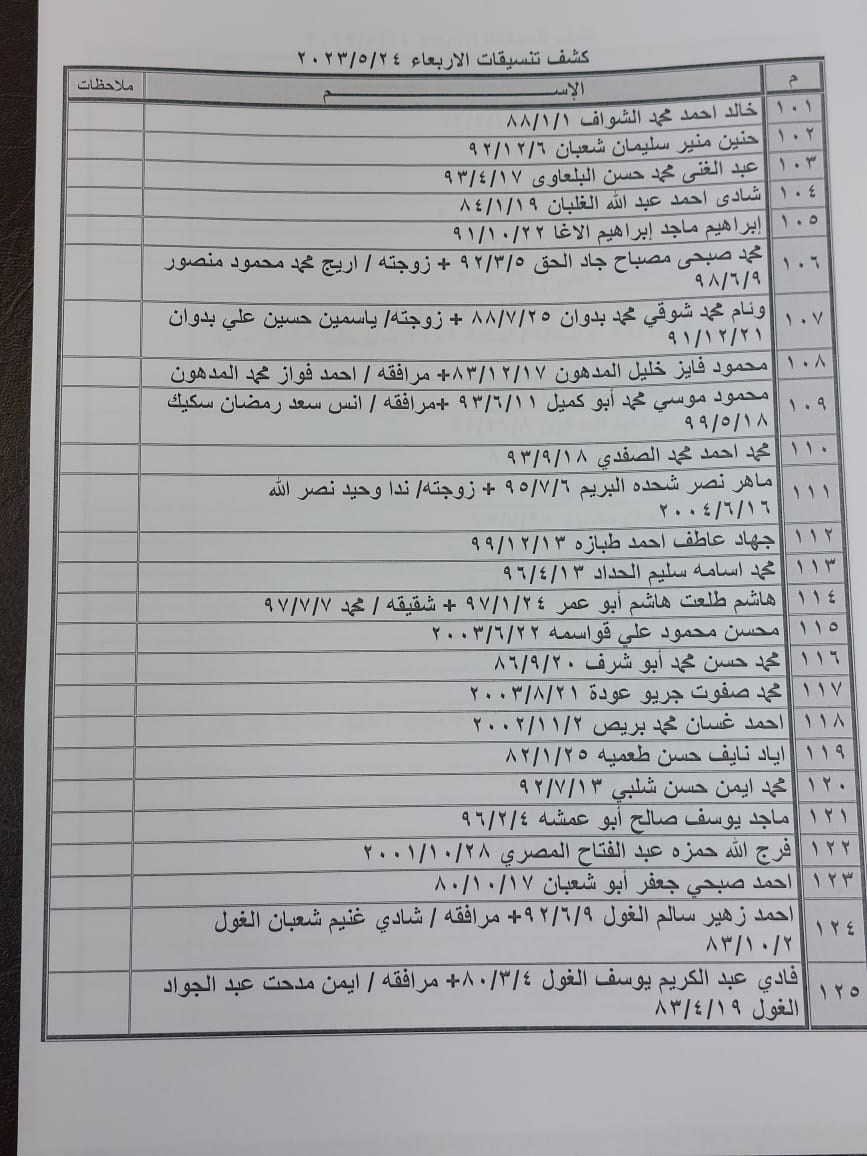 كشف تنسيقات الاربعاء ٢٠٢٣/٥/٢٤
م الإســـــم ملاحظات
١٠١ خالد احمد محمد الشواف ٨٨/١/١
١٠٢ حنين منير سليمان شعبان ٩٢/١٢/٦
١٠٣ عبد الغنى محمد حسن البلعاوى ٩٣/٤/١٧
١٠٤ شادى احمد عبد الله الغلبان ٨٤/١/١٩
١٠٥ إبراهيم ماجد إبراهيم الاغا ٩١/١٠/٢٢
١٠٦ محمد صبحى مصباح جاد الحق ٩٢/٣/٥ + زوجته / اريج محمد محمود منصور
٩٨/٦/٩
١٠٧ وئام محمد شوقي محمد بدوان ٨٨/٧/٢٥ + زوجته/ ياسمين حسين علي بدوان
٩١/١٢/٢١
١٠٨ محمود فايز خليل المدهون ٨٣/١٢/١٧+ مرافقه / احمد فواز محمد المدهون
١٠٩ محمود موسي محمد أبو كميل ٩٣/٦/١١ +مرافقه / انس سعد رمضان سكيك
٩٩/٥/١٨
١١٠ محمد احمد محمد الصفدي ٩٣/٩/١٨
١١١ ماهر نصر شحده البريم ٩٥/٧/٦ + زوجته/ ندا وحيد نصر الله
٢٠٠٤/٦/١٦
١١٢ جهاد عاطف احمد طبازه ٩٩/١٢/١٣
١١٣ محمد اسامه سليم الحداد ٩٦/٤/١٣
١١٤ هاشم طلعت هاشم أبو عمر ٩٧/١/٢٤ + شقيقه / محمد ٩٧/٧/٧
١١٥ محسن محمود علي قواسمه ٢٠٠٣/٦/٢٢
١١٦ محمد حسن محمد أبو شرف ٨٦/٩/٢٠
١١٧ محمد صفوت جريو عودة ٢٠٠٣/٨/٢١
١١٨ احمد غسان محمد بريص ٢٠٠٢/١١/٢
١١٩ اياد نايف حسن طعميه ٨٢/١/٢٥
١٢٠ محمد ايمن حسن شلبي ٩٢/٧/١٣
١٢١ ماجد يوسف صالح أبو عمشه ٩٦/٢/٤
١٢٢ فرج الله حمزه عبد الفتاح المصري ٢٠٠١/١٠/٢٨
١٢٣ احمد صبحي جعفر أبو شعبان ٨٠/١٠/١٧
١٢٤ احمد زهير سالم الغول ٩٢/٦/٩+ مرافقه / شادي غنيم شعبان الغول
٨٣/١٠/٢
١٢٥ فادي عبد الكريم يوسف الغول ٨٠/٣/٤+ مرافقه / ايمن مدحت عبد الجواد
الغول ٨٣/٤/١٩